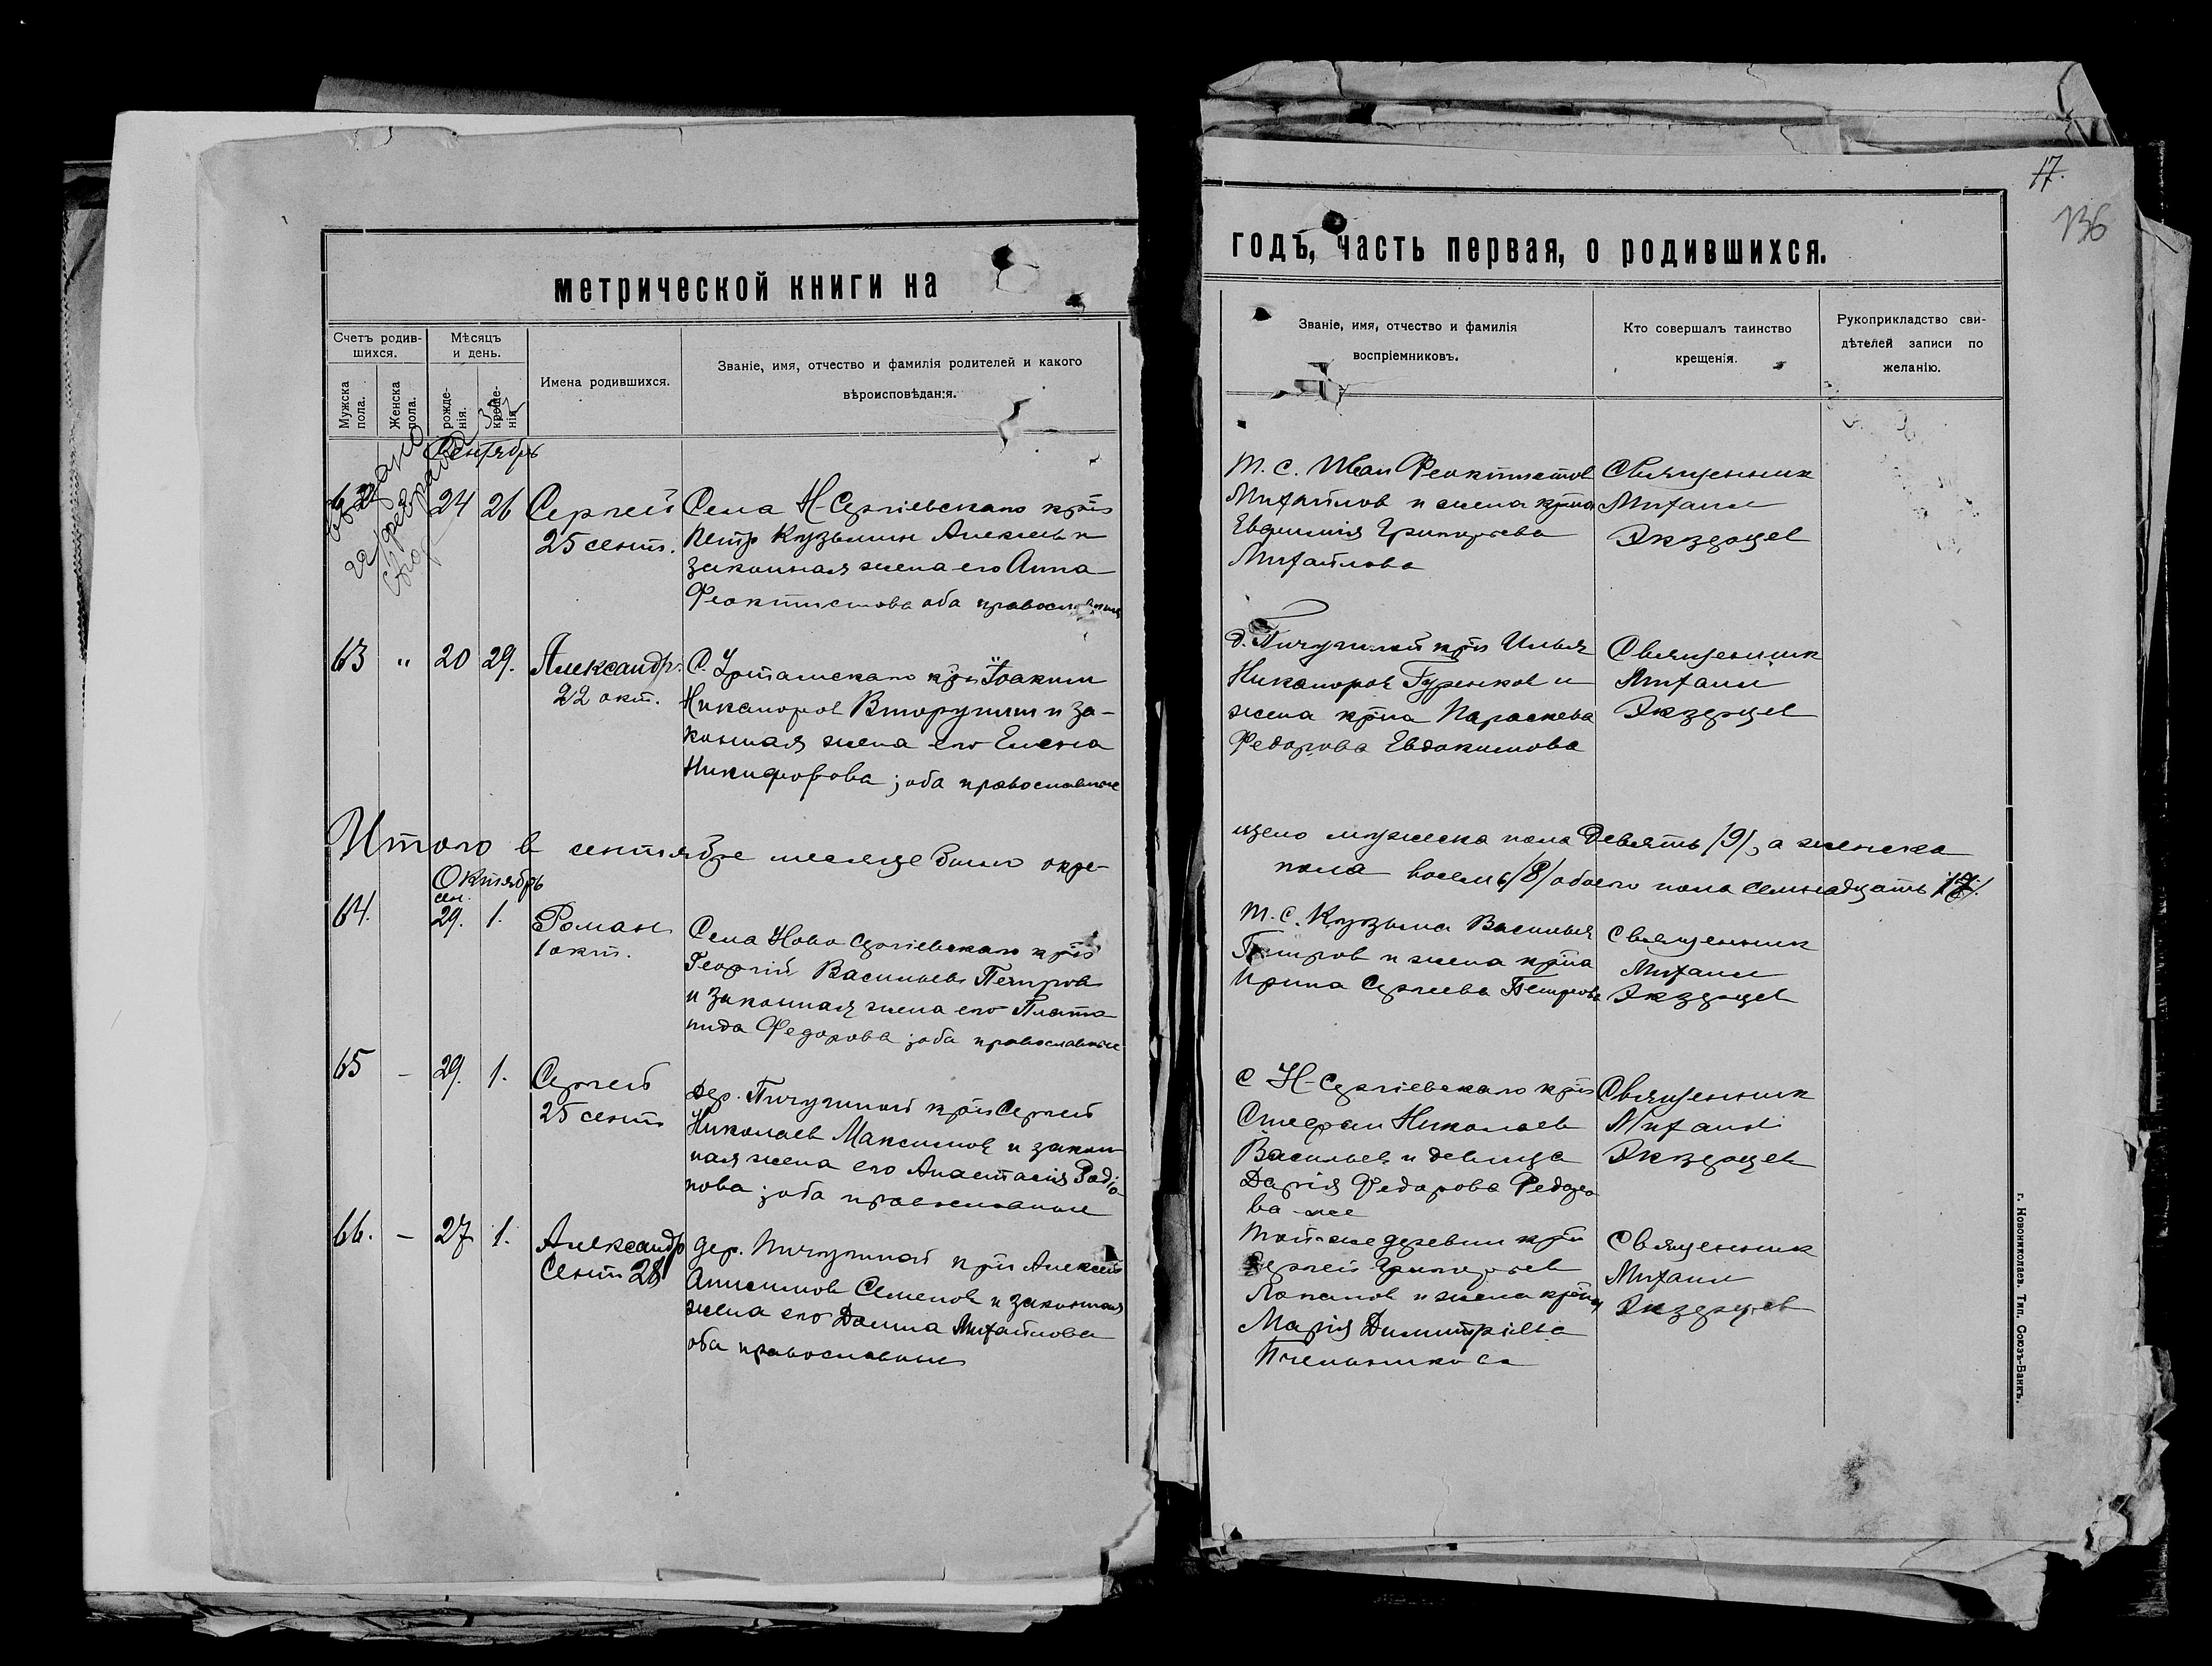 17.
136
метрической книги на
годъ, часть первая, о родившихся.
Счетъ родив-
шихся.
Мѣсяцъ
и день.
Мужска
пола.
Женска
пола.
рожде-
нія.
креще-
нія.
Имена родившихся.
Званіе, имя, отчество и фамилія родителей и какого
вѣроисповѣданія.
Званіе, имя, отчество и фамилія
воспріемниковъ.
Кто совершалъ таинство
крещенія.
Рукоприкладство сви-
дѣтелей записи по
желанію.
Сентябрь
62
24 26
Сергей
25 сент.
Села Н-Сергіевскаго крⷭ҇
Петр Кузьмин Алексеев и
законная жена его Анна
Феоктистова оба православные
Т. С. Иван Феоктистов
Михайлов и жена крⷭ҇на
Евдокимія Григорьева
Михайлова
Священник
Михаил
Экзерцев
63 " 20 29.
Александр.
22 окт.
С. Уртамскаго крⷭ҇ Іоаким
Никаноров Вторушин и за-
конная жена его Елена
Никифорова ; оба православные
д. Пичугиной крⷭ҇ Илья
Никаноров Гуренков и
жена крⷭ҇на Параскева
Федорова Евдокимова
Священник
Михаил
Экзерцев
Итого в сентябре месяце было окре-
щено мужеска пола Девять /9/, а женска
пола восемь /8/ обоего пола семнадцать /17/.
Октябрь
64.
сен.
29. 1.
Роман
1 окт.
Села Ново Сергіевскаго крⷭ҇
Георгій Васильев Петров
и законная жена его Плато
нида Федорова ; оба православные
Т. С. Кузьма Васильев
Петров и жена крⷭ҇на
Ирина Сергеева Петрова
Священник
Михаил
Экзерцев
65 – 29. 1.
Сергей
25 сент
Дер. Пичугиной крⷭ҇ Сергей
Николаев Максимов и закон
ная жена его Анастасія Радіо
нова ; оба православные
С Н-Сергіевскаго крⷭ҇
Стефан Николаев
Васильев и девица
Дарія Федорова Федоро
ва же
Священник
Михаил
Экзерцев
66. – 27 1.
Александр
Сент 28
дер. Пичугиной крⷭ҇ Алексей
Анисимов Семенов и законная
жена его Домна Михайлова
оба православные
Той-же деревни крⷭ҇
Сергей Григорьев
и жена крⷭ҇на
Марія Димитріева
Пчельникова
Священник
Михаил
Экзерцев
г. Новониколаев. Тип. Союзъ-Банкъ.